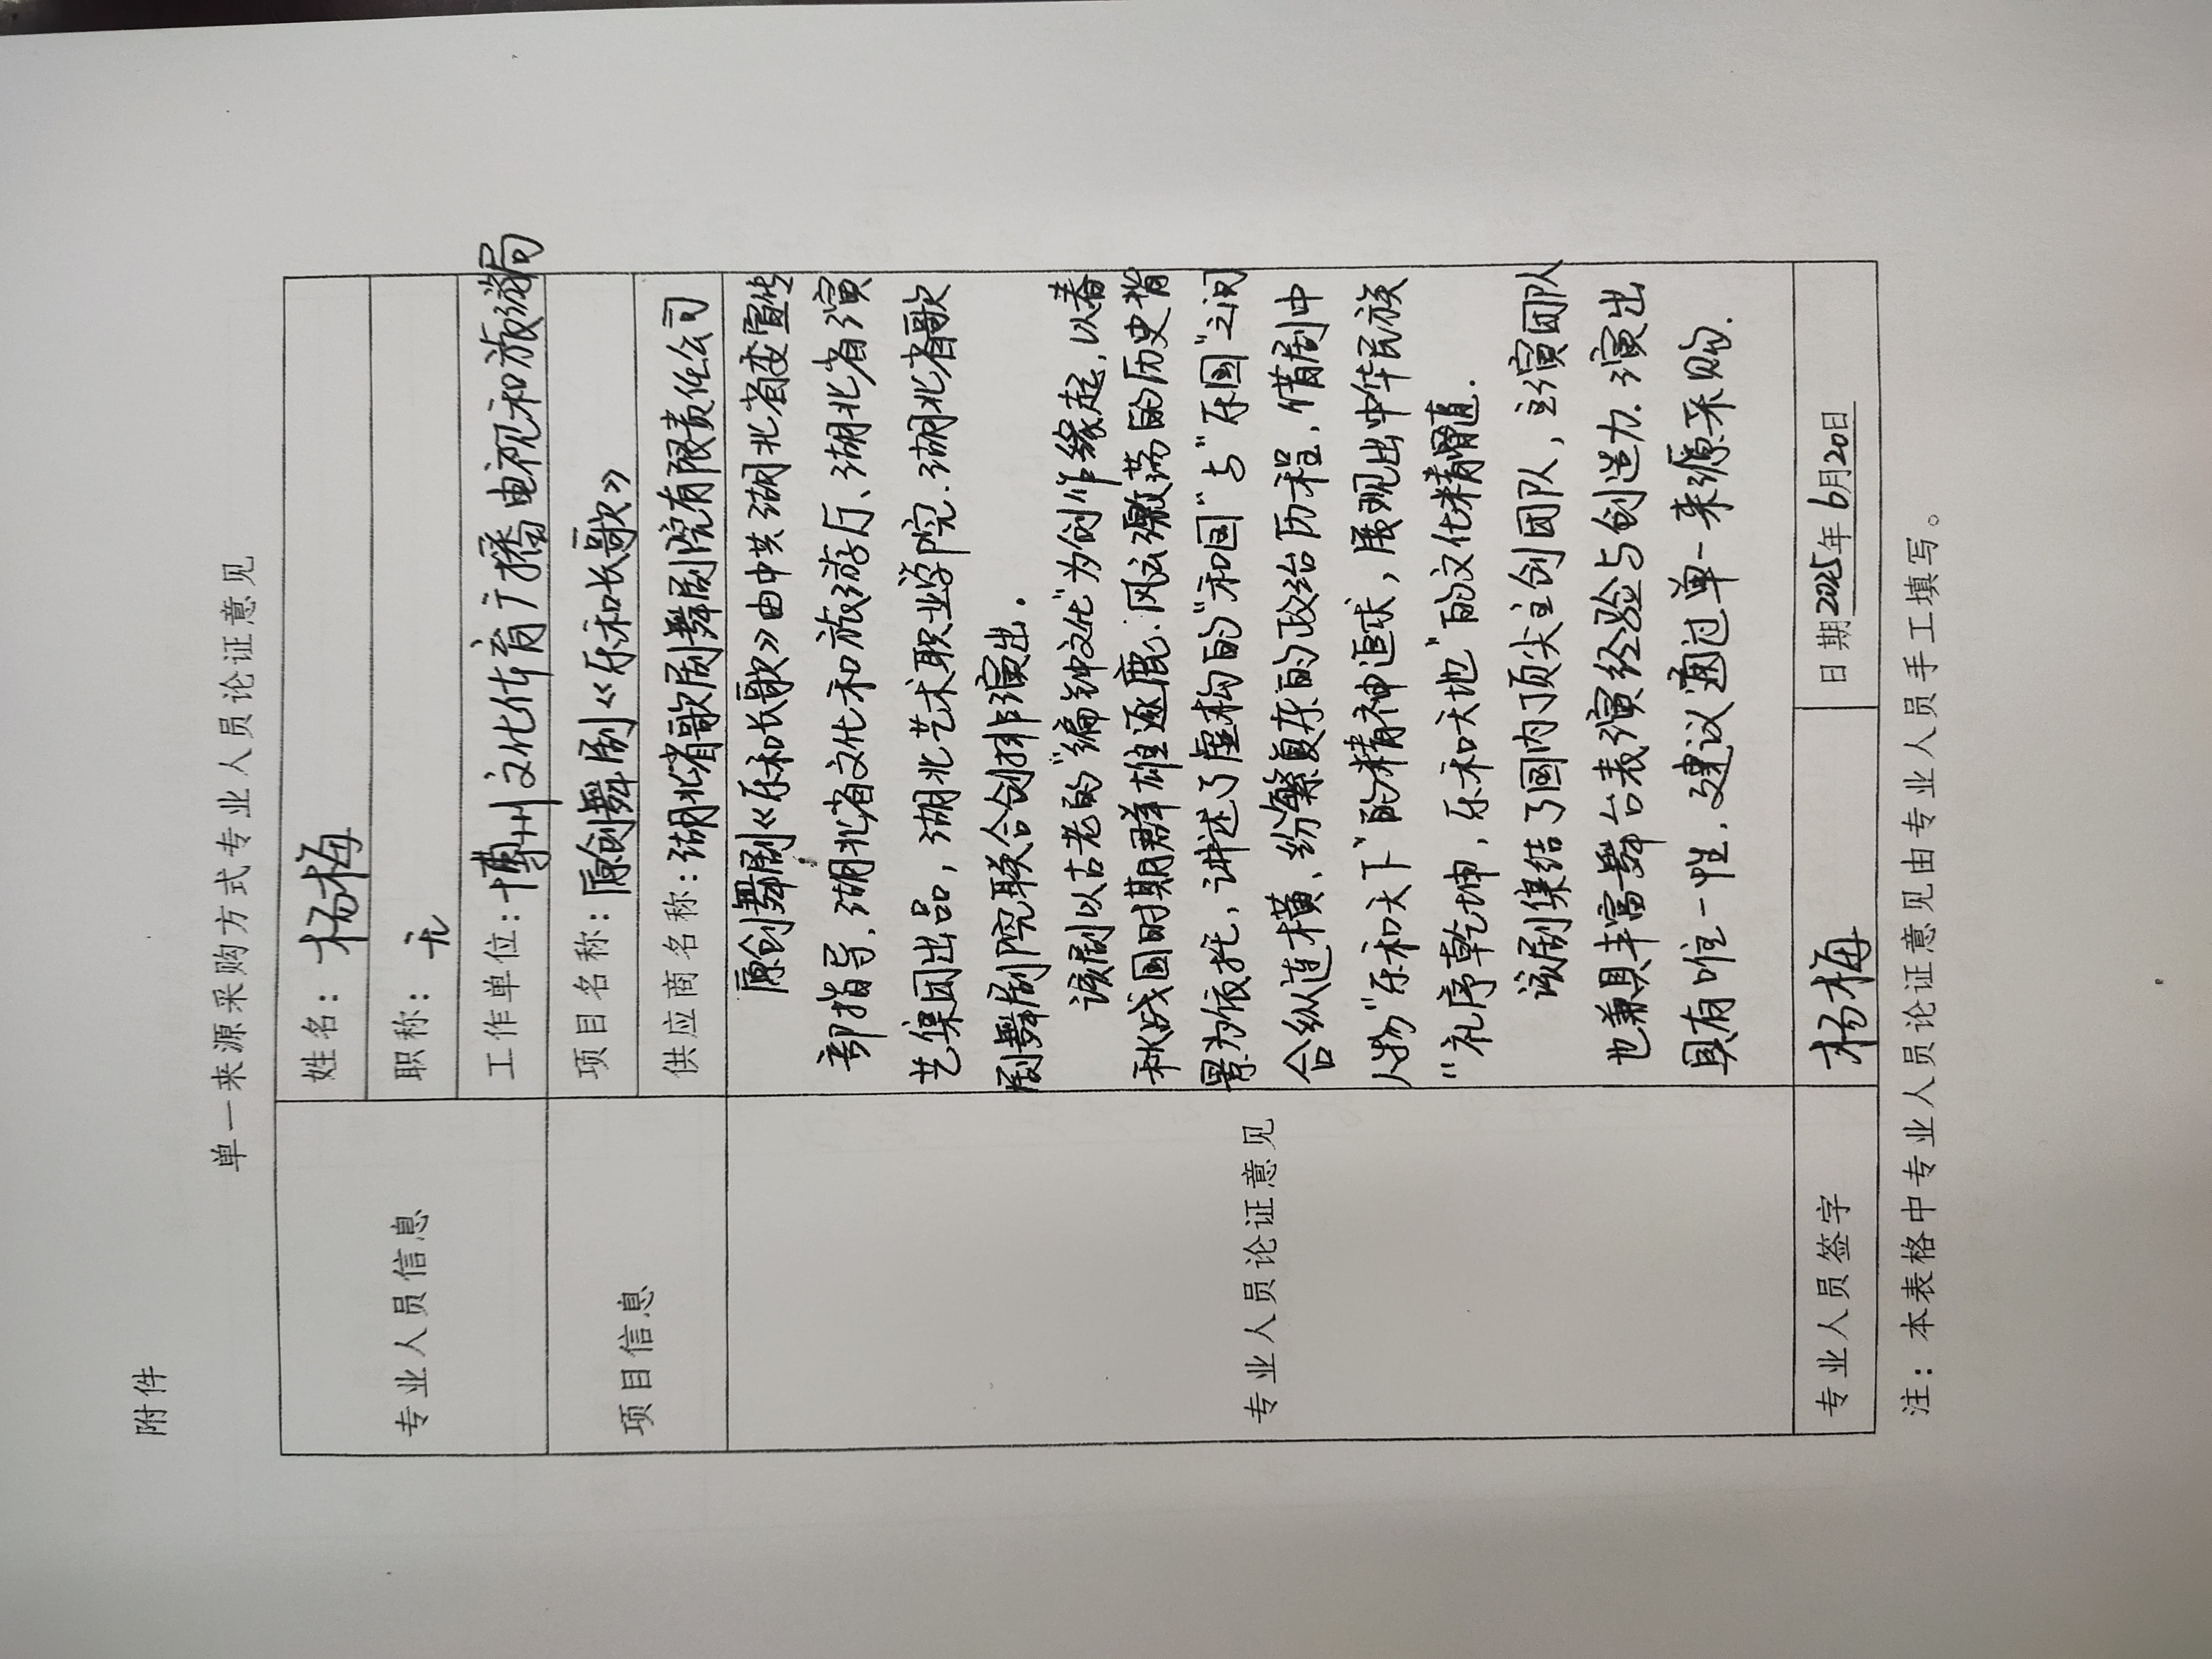 附件
单一来源采购方式专业人员论证意见
专业人员信息
姓名：杨梅
职称：无
工作单位：博州文化体育广播电视和旅游局
项目信息
项目名称：原创舞剧《乐和长歌》
供应商名称：湖北省歌剧舞剧院有限责任公司
专业人员论证意见
原创舞剧《乐和长歌》由中共湖北省委宣传
部指导，湖北省文化和旅游厅、湖北省演
艺集团出品，湖北艺术职业学院、湖北省歌
剧舞剧院联合创排演出。
该剧以古老的“编钟文化”为创作缘起，以春
秋战国时期群雄逐鹿、风云激荡的历史背
景为依托，讲述了虚构的“和国”与“乐国”之间
合纵连横、纷繁复杂的政治历程，借剧中
人物“乐和天下”的精神追求，展现出中华民族
“礼序乾坤，乐和天地”的文化精髓。
该剧集结了国内顶尖主创团队，主演团队
也兼具丰富舞台表演经验与创造力，演出
具有唯一性，建议通过单一来源采购。
专业人员签字
杨梅
日期2025年6月20日
注：本表格中专业人员论证意见由专业人员手工填写。